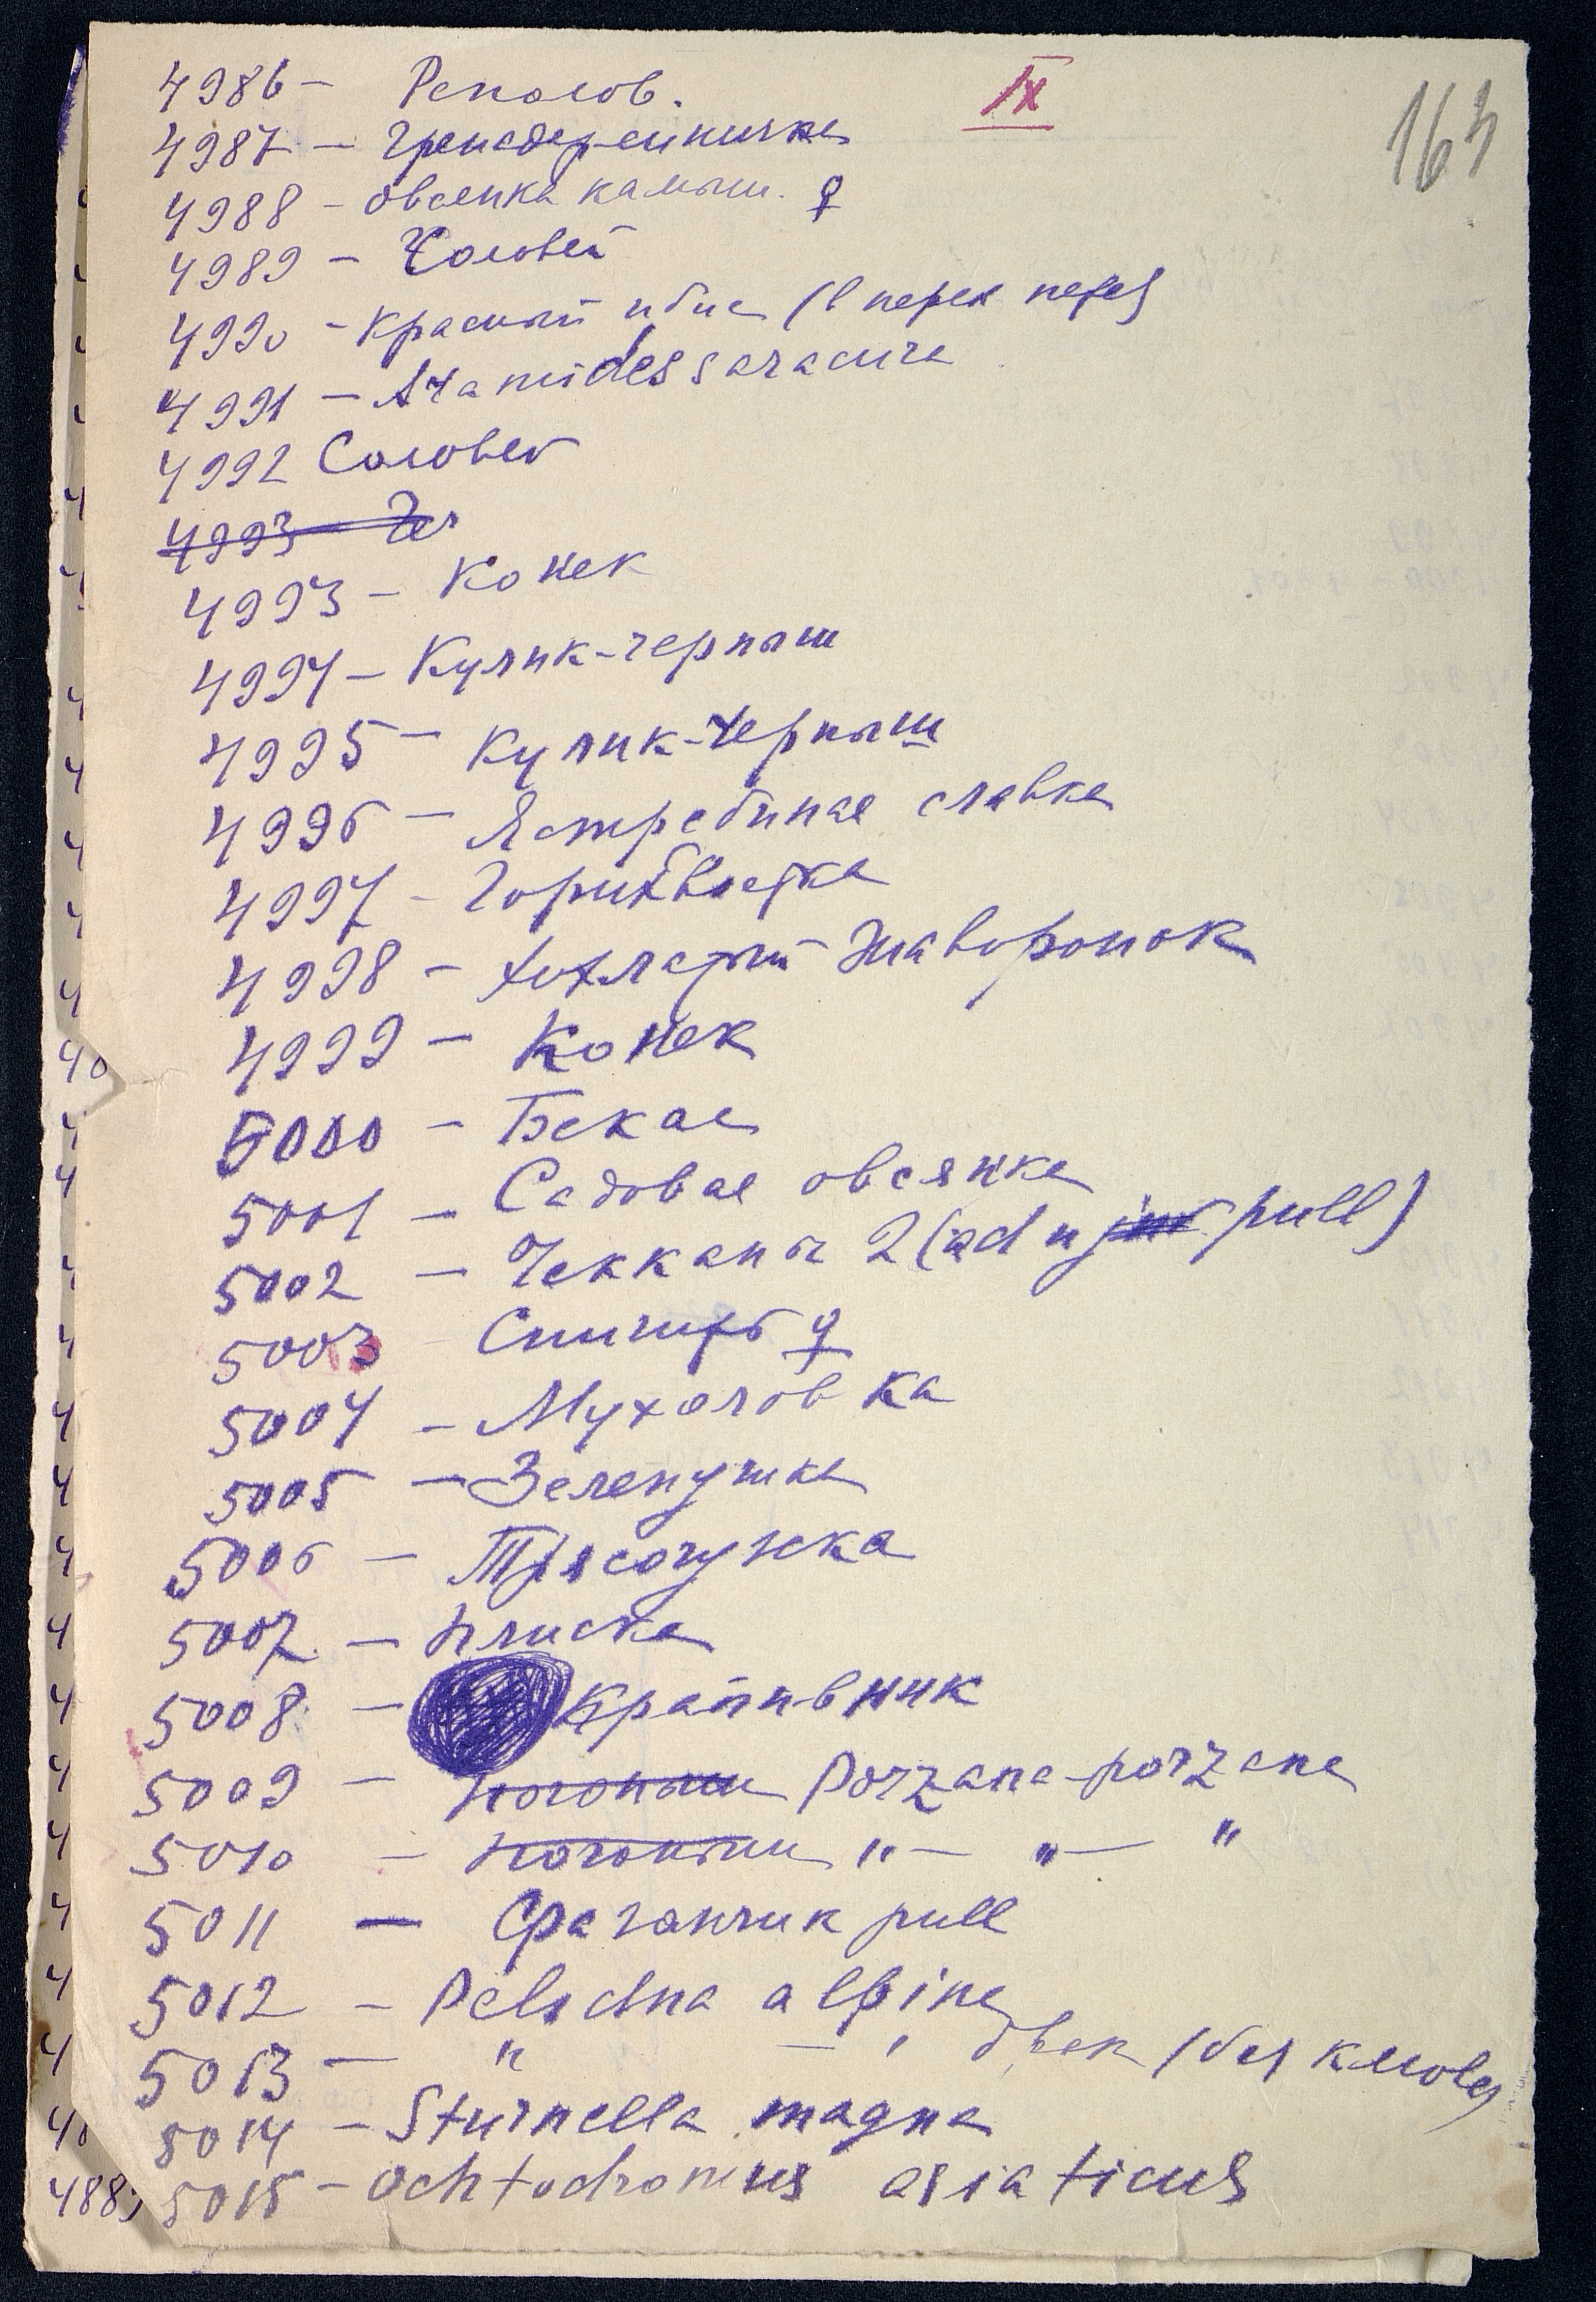 IX
163
4986 – Реполов.
4987 – Гренадер-синичка
4988 – Овсянка камыш. ♀
4989 – Соловей
4990 – Красный ибис (
4991 – Aramides saracura
4992 Соловей
4993 – Че
4993 – Конек
4994 – Кулик-черныш
4995 – Кулик-черныш
4996 – Ястребиная славка
4997 – Горихвостка
4998 – Хохлатый жаворонок
4999 – Конек
5000 – Бекас
5001 – Садовая овсянка
5002 – Чекканы 2 (ad и juv pull)
5003 – Снигирь ♀
5004 – Мухоловка
5005 – Зеленушка
5006 – Трясогузка
5007 – Плиска
5008 – Крапивник
5009 – Погоныш Porzana-porzana
5010 – Погоныш "– "– "
5011 – pull
5012 – Pelidna alpina
5013 – " – " (без клюва)
5014 – Sturnella magna
5015 – Ochtodromus asiaticus